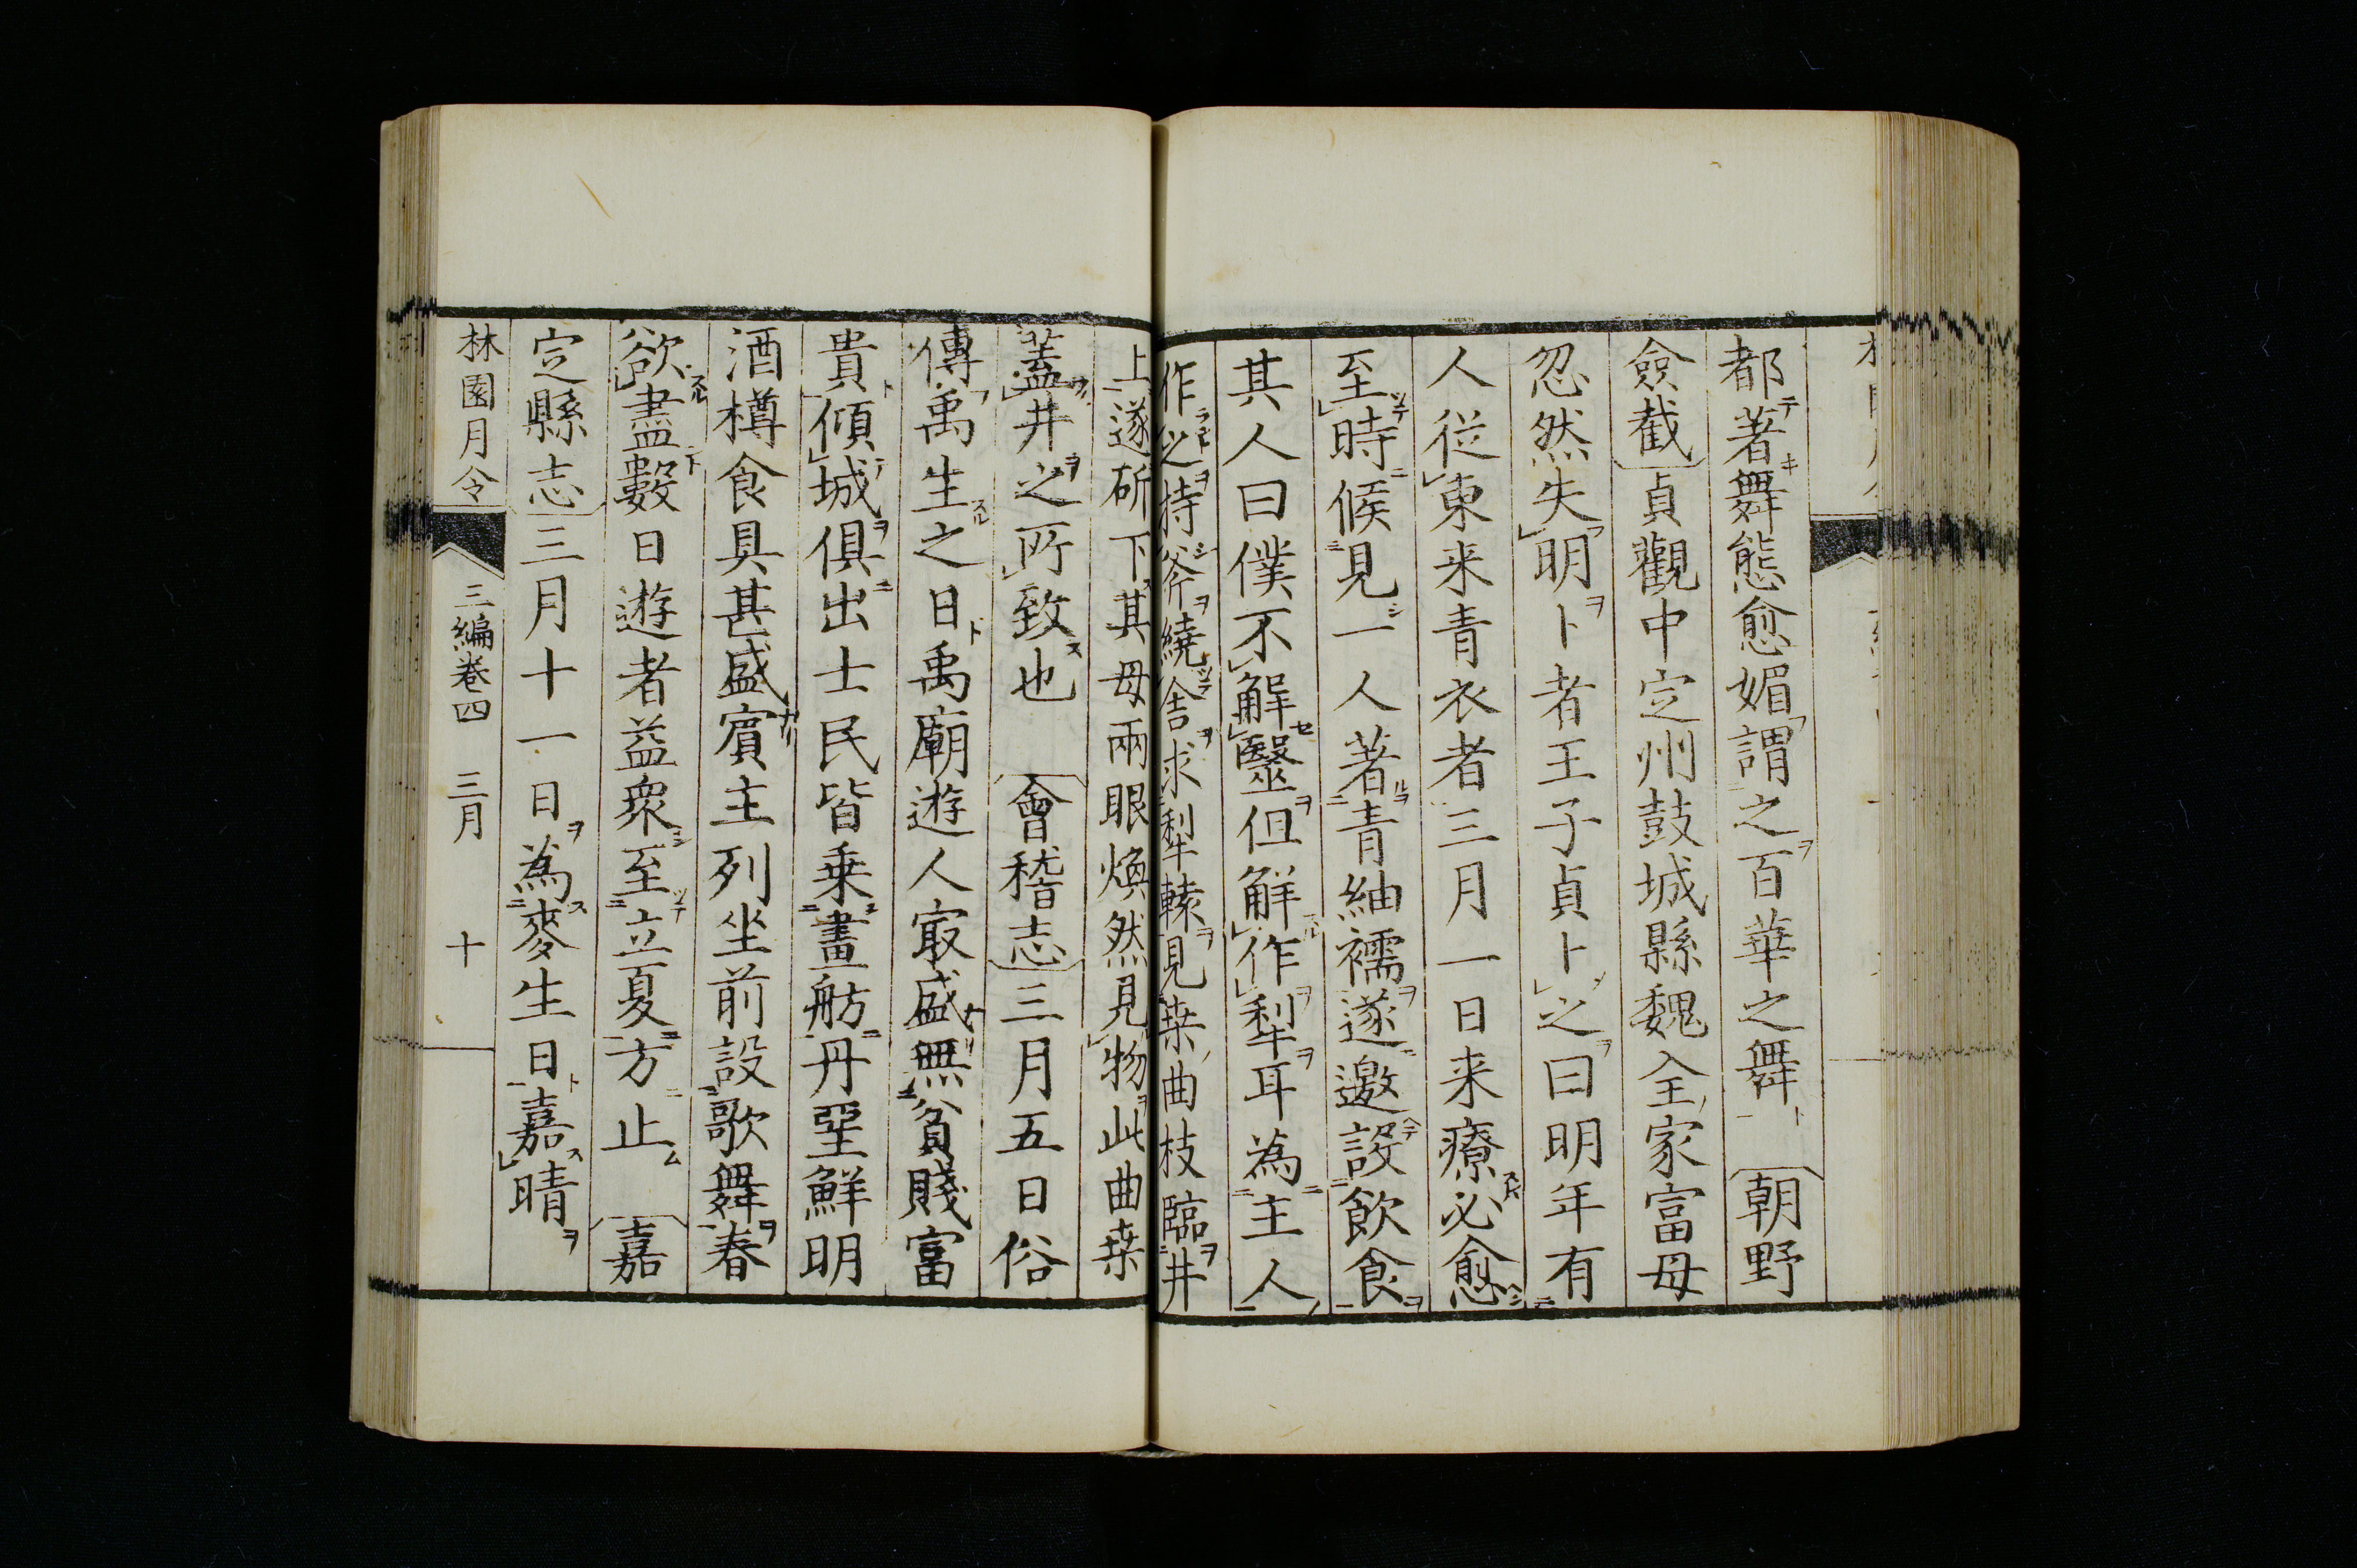 都著舞態愈媚謂之百華之舞 朝野
僉截貞觀中定州鼓城縣魏全家富母
忽然失明卜者王子貞卜之曰明年有
人従東来青衣者三月一日来療必愈
至時候見一人著青紬襦遂邀設飲食
其人曰僕不解毉但解作犁耳為主人
作之持斧繞舎求犁轅見桒曲枝臨井
上遂斫下其母兩眼煥然見物此曲桒
蓋井之所致也 會稽志三月五日俗
傳禹生之日禹廟遊人㝡盛無貧賤富
貴傾城俱出士民皆乗畫舫丹堊鮮明
酒樽食具甚盛賓主列坐前設歌舞春
欲盡數日遊者益衆至立夏方止 嘉
定縣志三月十一日為麥生日嘉晴
林園月令 三編巻四 三月 十